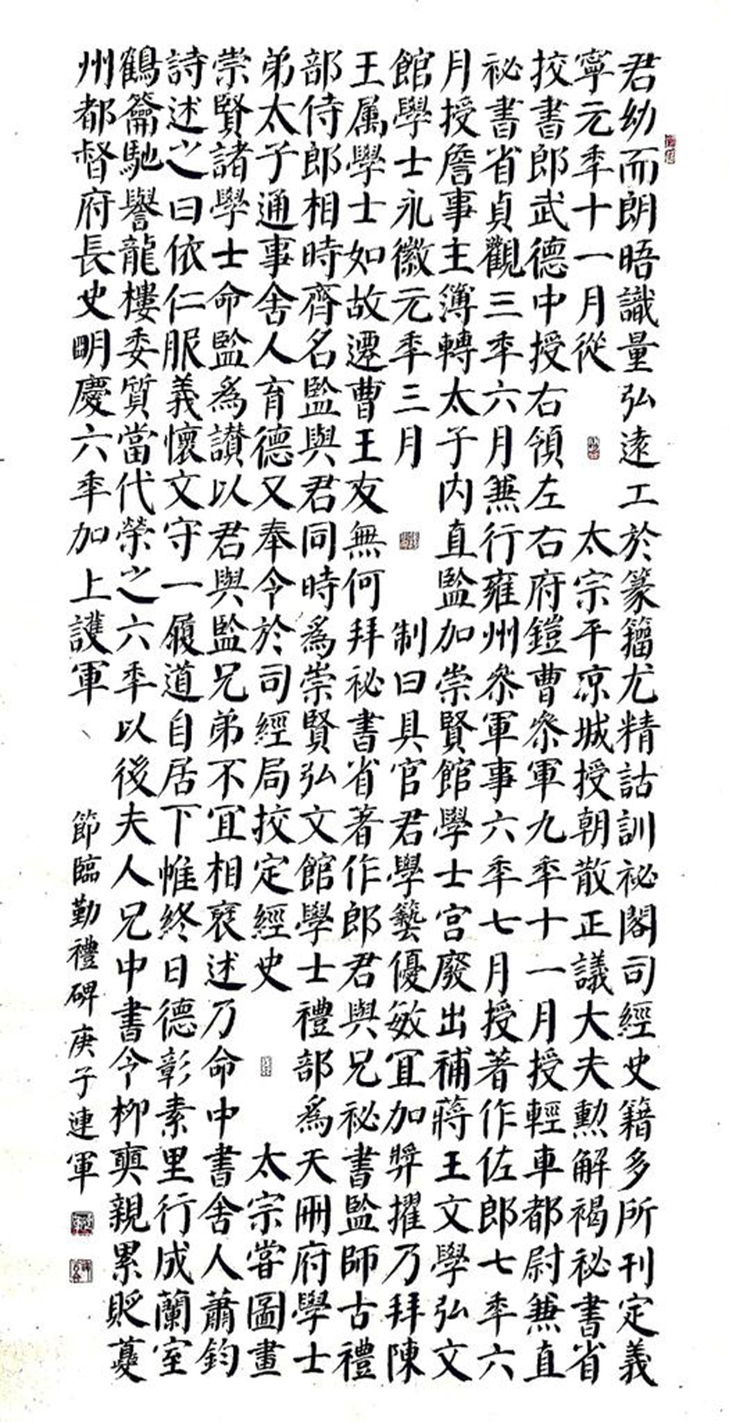 君幼而朗晤識量弘遠工於篆籀尤精詁訓祕閣司經史籍多所刊定義
寧元年十一月從 太宗平凉城授朝散正議大夫勳解褐祕書省
挍書郎武德中授右領左右府鎧曹叅軍九年十一月授輕車都尉兼直
祕書省貞觀三年六月兼行雍州叅軍事六年七月授著作佐郎七年六
月授詹事主簿轉太子内直監加崇賢館學士宫廢出補蔣王文學弘文
館學士永徽元年三月 制曰具官君學藝優敏宜加奬擢乃拜陳
王属學士如故遷曹王友無何拜祕書省著作郎君與兄祕書監師古禮
部侍郎相時齊名監與君同時爲崇賢弘文館學士禮部爲天冊府學士
弟太子通事舍人育德又奉令於司經局挍定經史 太宗甞圖畫
崇賢諸學士命監爲讃以君與監兄弟不宜相褒述乃命中書舍人蕭鈞
詩述之曰依仁服義懷文守一履道自居下帷終日德彰素里行成蘭室
鶴籥馳譽龍樓委質當代榮之六年以後夫人兄中書令柳奭親累貶夔
州都督府長史明慶六年加上護軍、
節臨勤禮碑庚子連軍